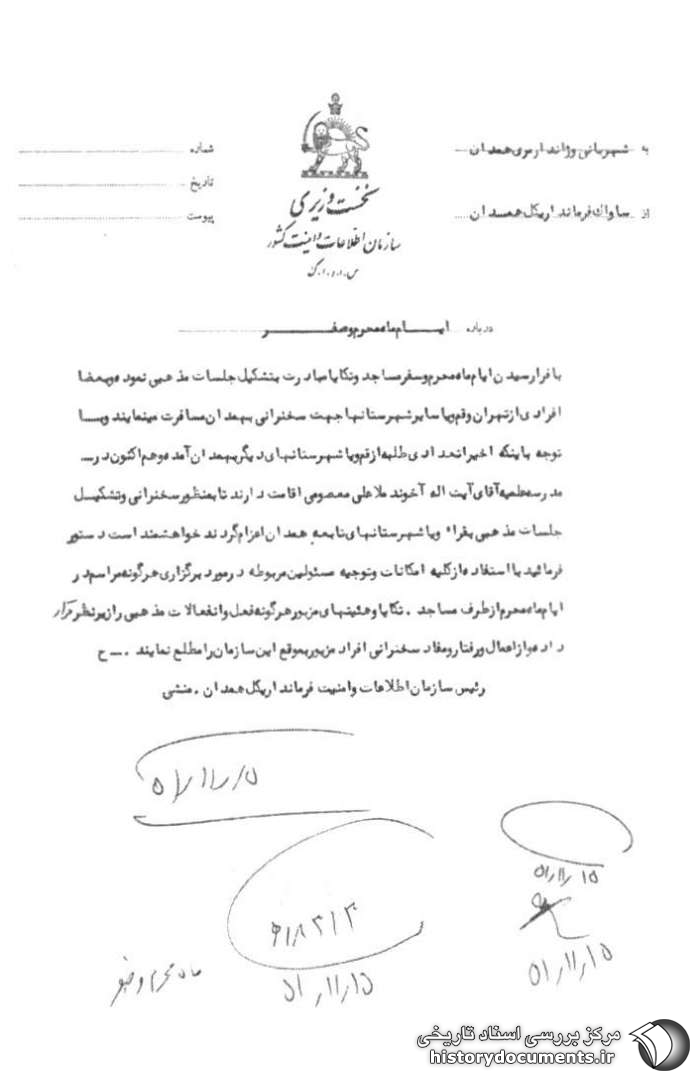 به شهربانی و ژاندارمری همدان
از ساواک فرمانداریکل همدان
شماره
تاریخ
پیوست
نخست وزیری
سازمان اطلاعات و امنیت کشور
س.ا.و.ا.ک
درباره ایـــام ماه محرم و صفـــر
با فرا رسیدن ایام ماه محرم و صفر مساجد و تکایا مبادرت بتشکیل جلسات مذهبی نموده و بعضا
افرادی از تهران و قم و یا سایر شهرستانها جهت سخنرانی بهمدان مسافرت مینمایند و با
توجه باینکه اخیرا تعدادی طلبه از قم و یا شهرستانهای دیگر بهمدان آمده و هم اکنون در ــ
مدرسه علمیه آقای آیت اله آخوند ملا علی معصومی اقامت دارند تا بمنظور سخنرانی و تشکیل
جلسات مذهبی بقراء و یا شهرستانهای تابعه همدان اعزام گردند خواهشمند است دستور
فرمائید با استفاده از کلیه امکانات و توجیه مسئولین مربوطه در مورد برگزاری هرگونه مراسم در
ایام ماه محرم از طرف مساجد . تکایا و هیئتهای مزبور هرگونه فعل و انفعالات مذهبی را زیر نظر قرار
داده و از اعمال و رفتار و مفاد سخنرانی افراد مزبور بموقع این سازمان را مطلع نمایند . ـــ ح
رئیس سازمان اطلاعات و امنیت فرمانداریکل همدان . منشی
۱۵/۱۱/۵۱
۱۵/۱۱/۵۱
۱۵/۱۱/۵۱
۱۵/۱۱/۵۱
ماه محرم و صفر
مرکز بررسی اسناد تاریخی
historydocuments.ir